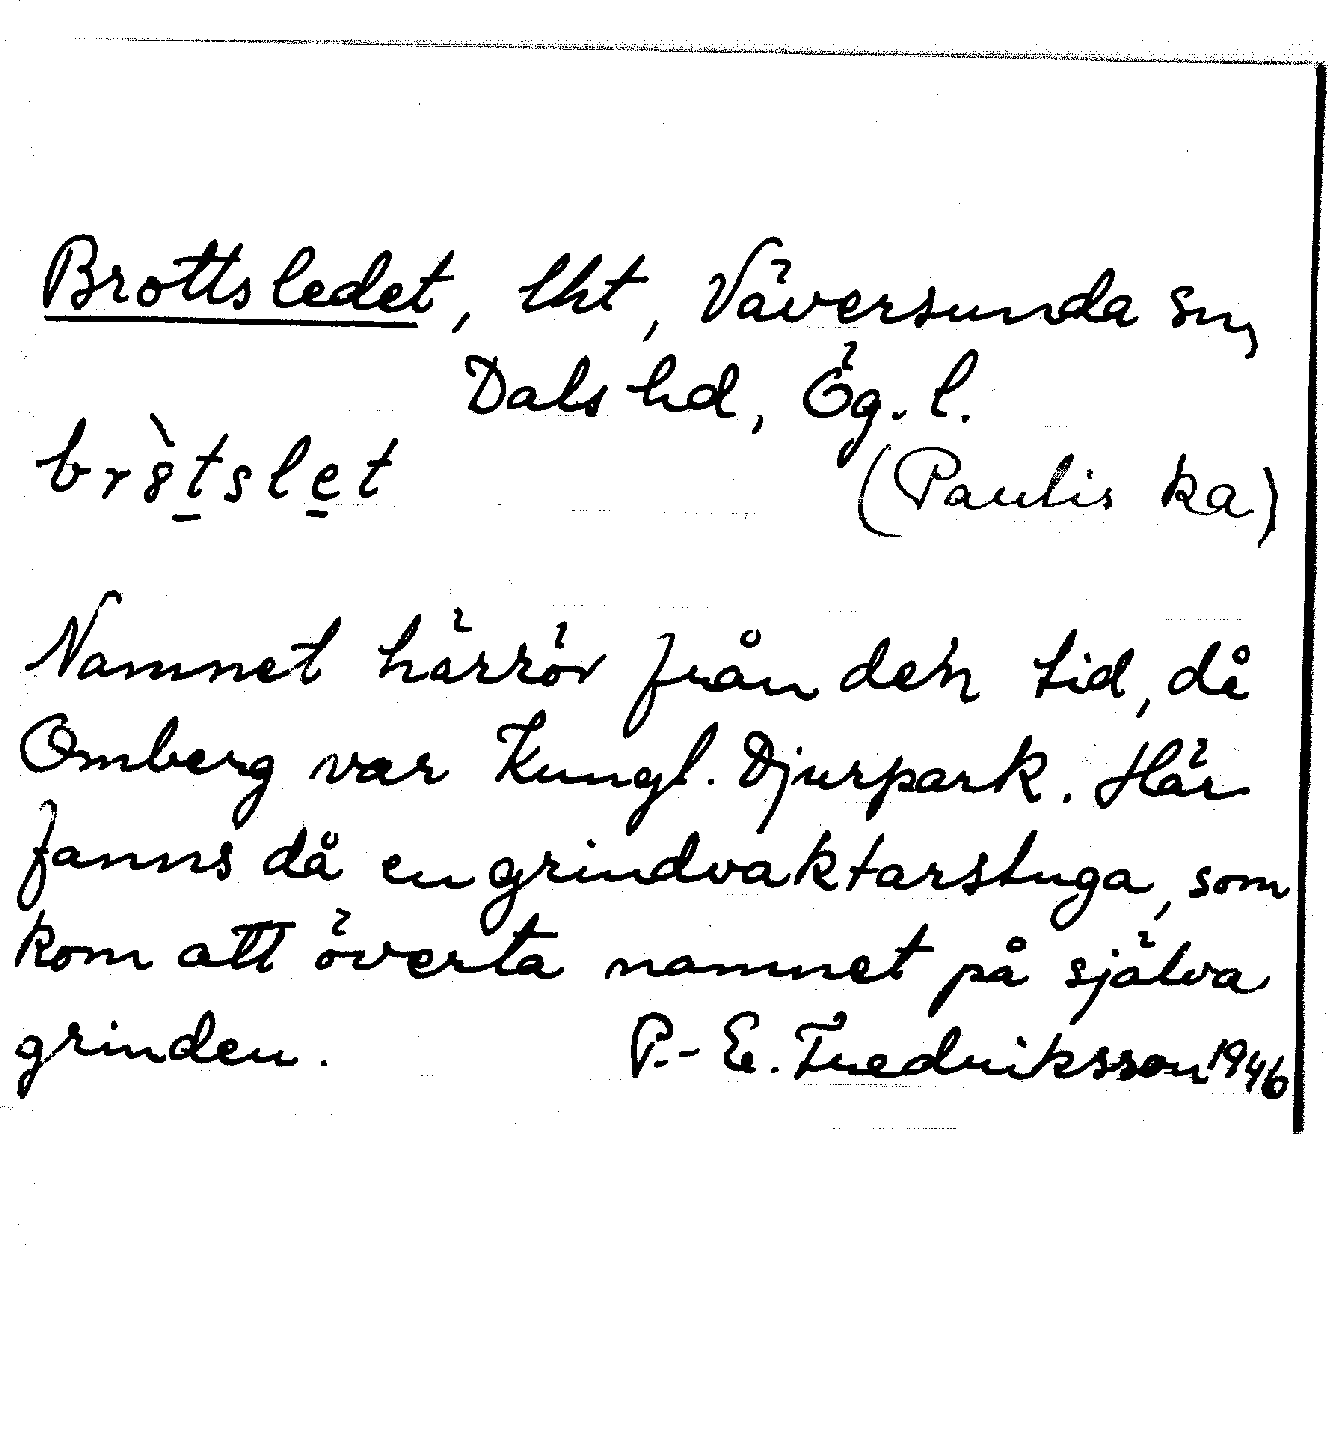 Brottsledet, lht, Väversunda sn,
Dals hd, Ög. l.
br8̀t̠sle̠t
(Paulis ka)
Namnet härrör från den tid, då
Omberg var Kungl. Djurpark. Här
fanns då en grindvaktarstuga, som
kom att överta namnet på själva
grinden.
P.-E. Fredriksson 1946